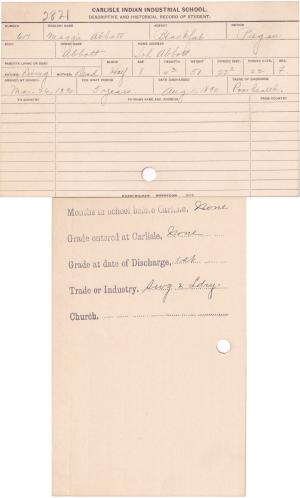 2871
CARLISLE INDIAN INDUSTRIAL SCHOOL.
DESCRIPTIVE AND HISTORICAL RECORD OF STUDENT.
NUMBER ENGLISH NAME AGENCY NATION
617 Maggie Abbott Blackfeet Piegan
BAND INDIAN NAME HOME ADDRESS
Abbott Sol Abbott
PARENTS LIVING OR DEAD BLOOD AGE HEIGHT WEIGHT FORCED INSP. FORCED EXPR. SEX
FATHER, Living MOTHER, Dead Half 8 F
ARRIVED AT SCHOOL FOR WHAT PERIOD DATE DISCHARGED CAUSE OF DISCHARGE
Mar. 26, 1890 5 years Aug. 1890 Poor health
TO COUNTRY PATRONS NAME AND ADDRESS FROM COUNTRY
Months in school before Carlisle, None
Grade entered at Carlisle, None
Grade at date of Discharge, 1st
Trade or Industry. Swg & Ldry.
Church.